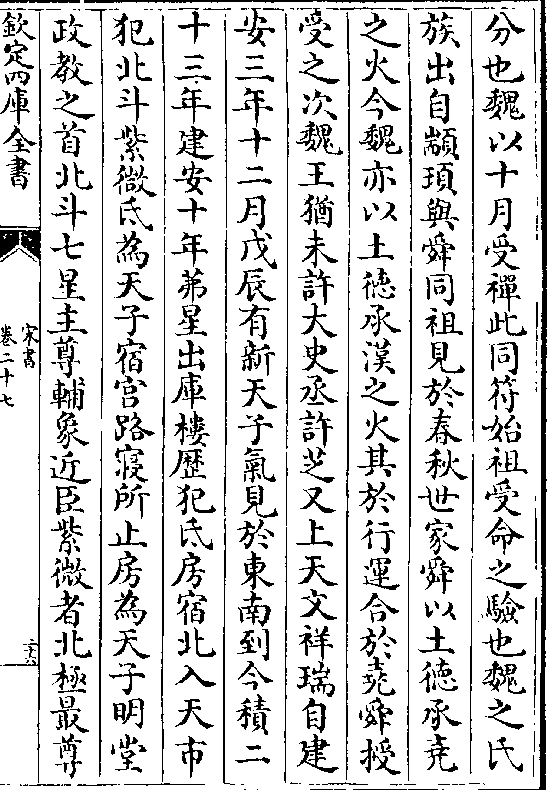 分也魏以十月受禪此同符始祖受命之驗也魏之氏
族出自顓頊與舜同祖見於春秋世家舜以土德承堯
之火今魏亦以土德承漢之火其於行運合於堯舜授
受之次魏王猶未許大史丞許芝又上天文祥瑞自建
安三年十二月戊辰有新天子氣見於東南到今積二
十三年建安十年茀星出庫樓歷犯氐房宿北入天市
犯北斗紫微氐為天子宿宫路寝所止房為天子明堂
政教之首北斗七星主尊輔象近臣紫微者北極最尊
欽定四庫全書
宋書
卷二十七
二六